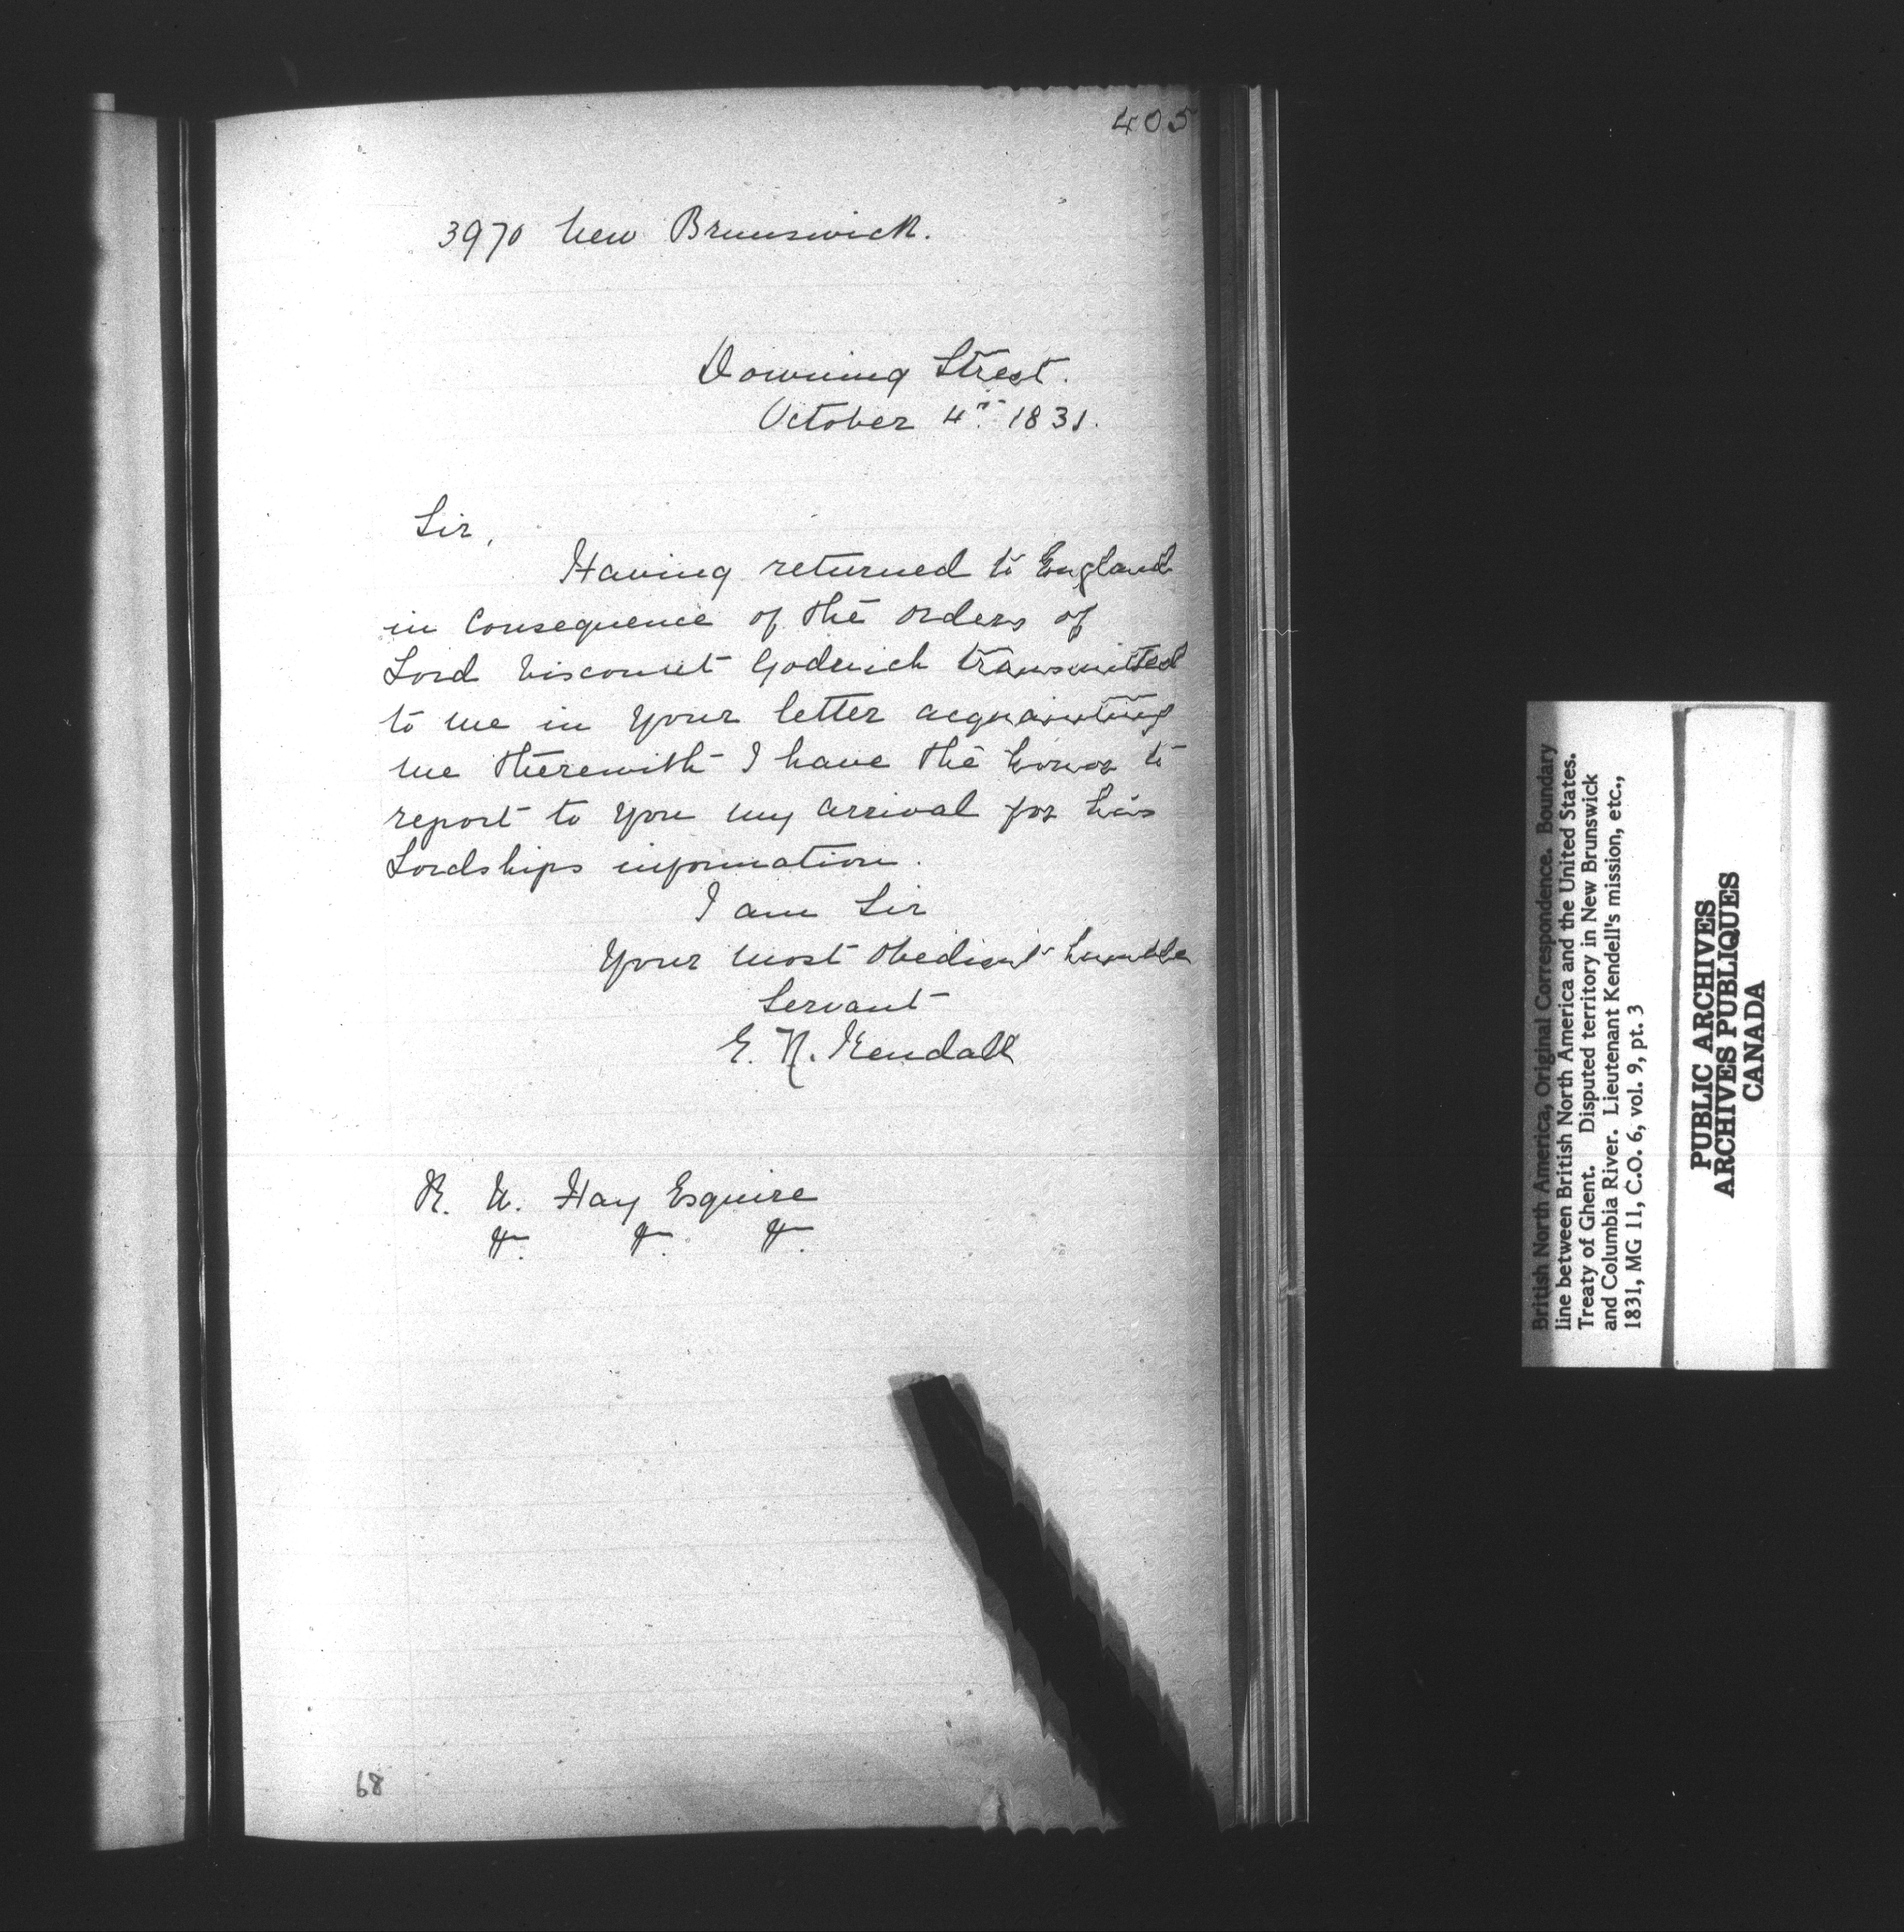 405
3970 New Brunswick.
Downing Street.
October 4th 1831.
Sir,
Having returned to England
in Consequence of the orders of
Lord Viscount Goderich transmitted
to me in your letter acquainting
me therewith I have the honor to
report to you my arrival for his
Lordships information.
I am Sir
Your most obedient humble
Servant
E. N. Kendall
R. W. Hay Esquire
&c. &c. &c.
68
British North America, Original Correspondence. Boundary
line between British North America and the United States.
Treaty of Ghent. Disputed territory in New Brunswick
and Columbia River. Lieutenant Kendell's mission, etc.,
1831, MG 11, C.O. 6, vol. 9, pt. 3
PUBLIC ARCHIVES
ARCHIVES PUBLIQUES
CANADA